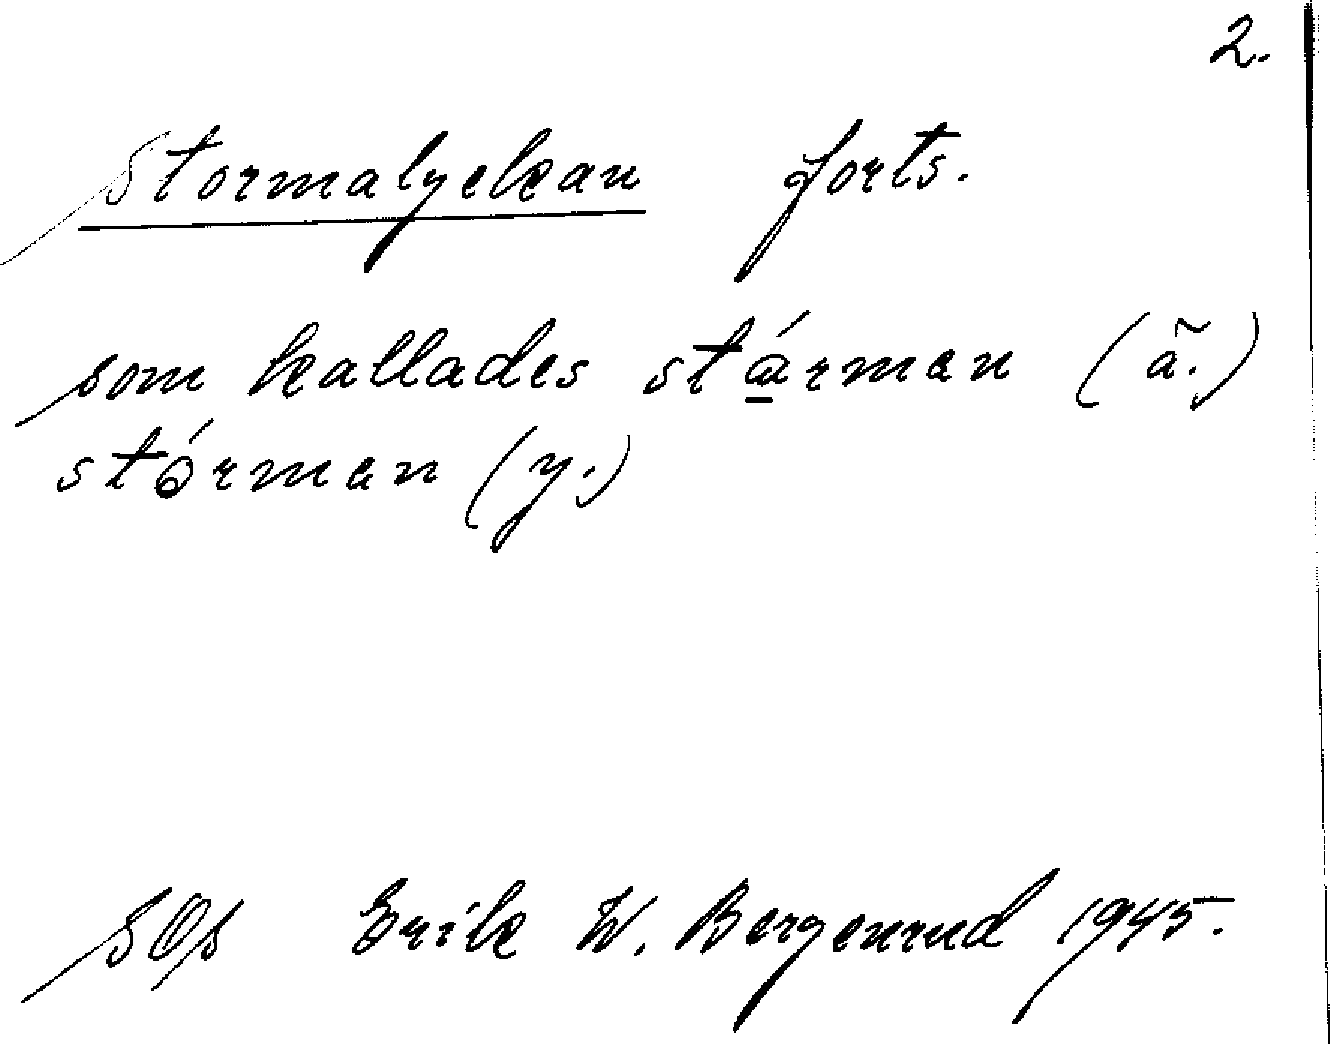 2.
Stormalyckan forts.
som kallades stá̱rman (ä.)
stórman (y.)
SOs Erik W. Bergenrud 1945.